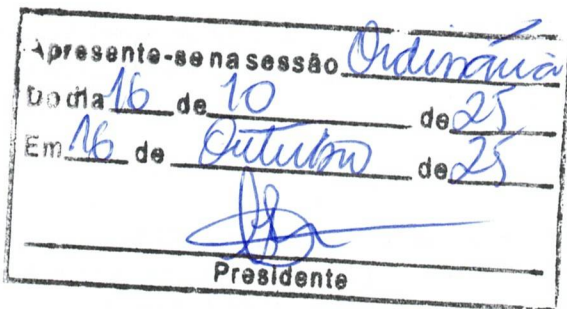 Apresente-se na sessão Ordinária
Do dia 16 de 10 de 25
Em 16 de Outubro de 25
Presidente